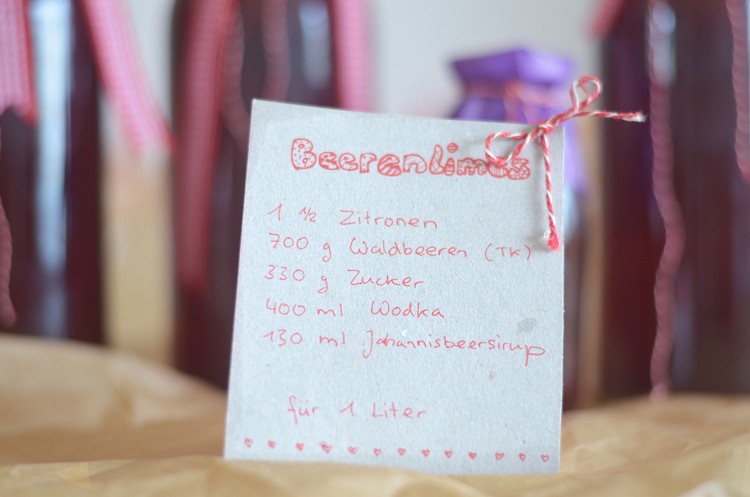 Beerenlimes
1 1/2 Zitronen
700 g Waldbeeren (TK)
330 g Zucker
400 ml Wodka
130 ml Johannisbeersirup
für 1 Liter